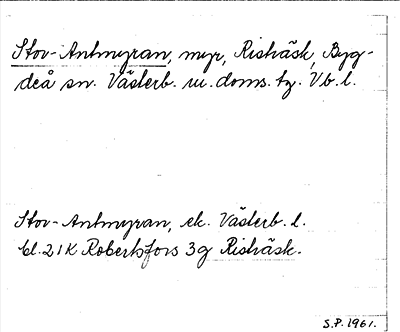 Stor-Antmyran, myr, Risträsk, Byg-
deå sn. Västerb. m. doms. tg. Vb. l.
Stor-Antmyran, ek. Västerb. l.
bl. 21K Robertsfors 3g Risträsk.
S.P. 1961.